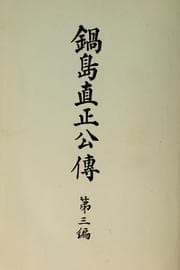 鍋島直正公傳
第三編